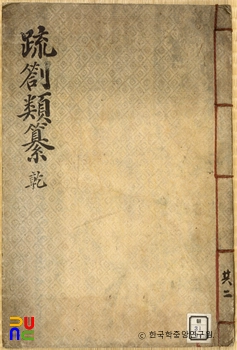 疏箚類纂
乾
共二
© 한국학중앙연구원